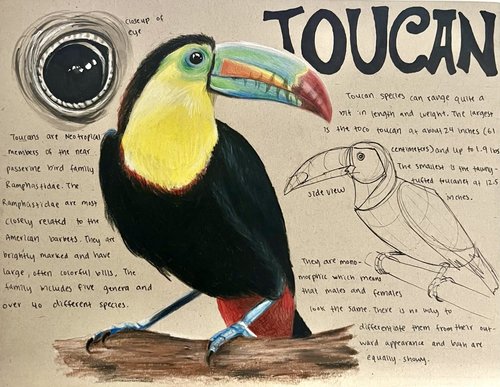 TOUCAN
closeup of
eye
Toucan species can range quite a
bit in length and weight. The largest
is the toco toucan at about 24 inches (61
centimeters) and up to 1.9 lbs
The smallest is the tawny-
tufted toucanets at 12.5
inches.
side view
Toucans are Neotropical
members of the near
passerine bird family
Ramphastidae. The
Ramphastidae are most
closely related to the
American barbets. They are
brightly marked and have
large, often colorful bills. The
family includes five genera and
over 40 different species.
They are mono-
morphic which means
that males and females
look the same. There is no way to
differentiate them from their out-
ward appearance and both are
equally showy.